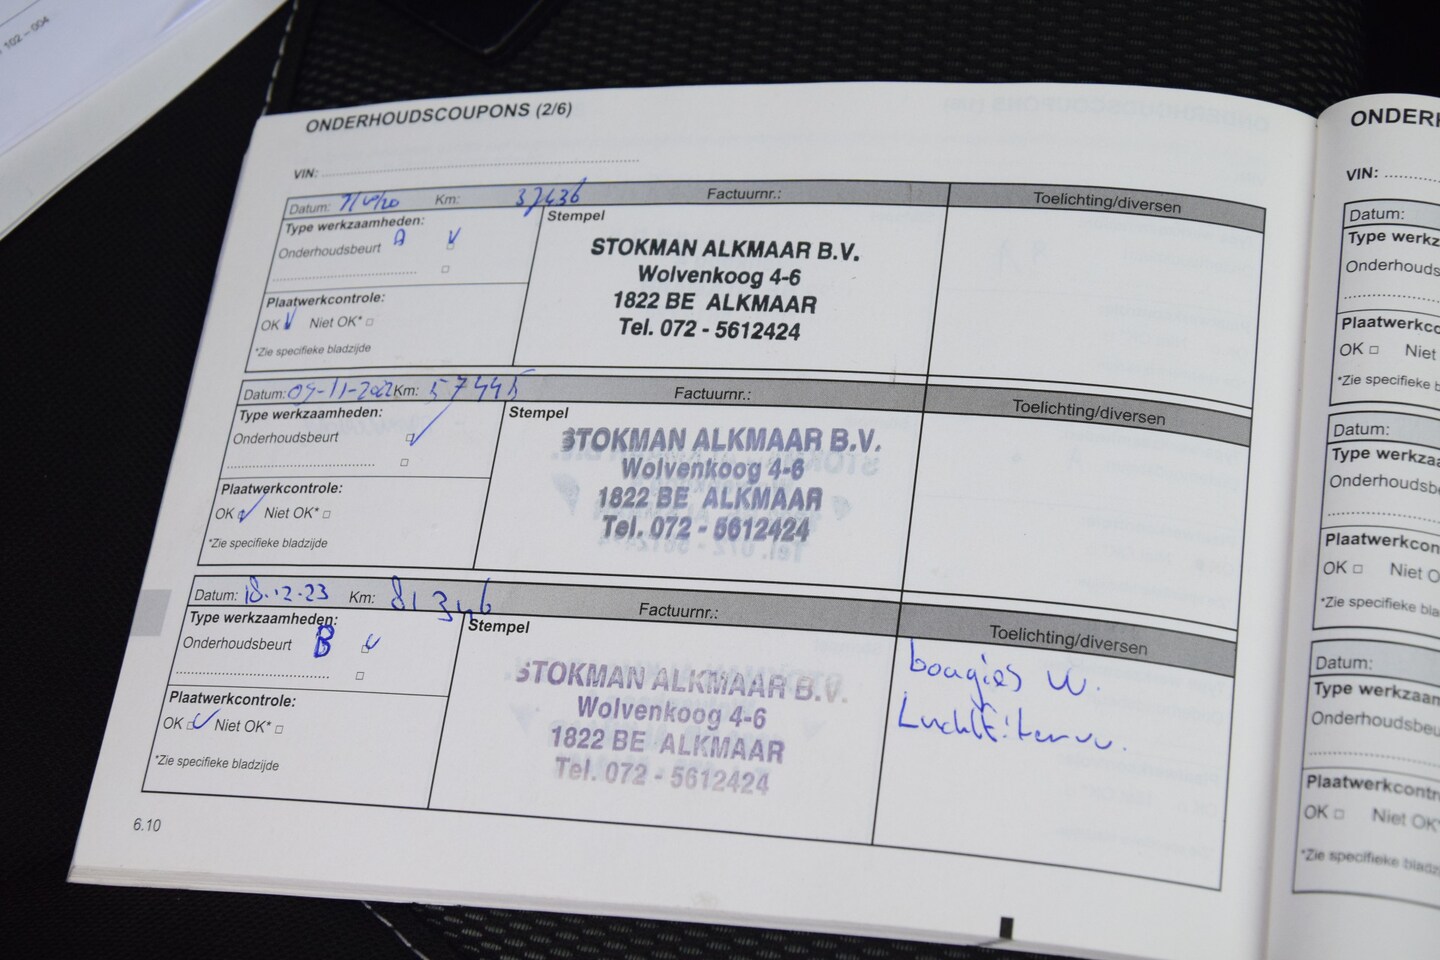 102 – 004
ONDERHOUDSCOUPONS (2/6)
VIN:
Datum: Km: 37436 Factuurnr.: Toelichting/diversen
Type werkzaamheden:
Onderhoudsbeurt A V
Stempel
STOKMAN ALKMAAR B.V.
Wolvenkoog 4-6
1822 BE ALKMAAR
Tel. 072 - 5612424
Plaatwerkcontrole:
OK V Niet OK*
*Zie specifieke bladzijde
Datum: Km: 57445 Factuurnr.: Toelichting/diversen
Type werkzaamheden:
Onderhoudsbeurt
Stempel
STOKMAN ALKMAAR B.V.
Wolvenkoog 4-6
1822 BE ALKMAAR
Tel. 072 - 5612424
Plaatwerkcontrole:
OK Niet OK*
*Zie specifieke bladzijde
Datum: 18.12.23 Km: 81346 Factuurnr.: Toelichting/diversen
Type werkzaamheden:
Onderhoudsbeurt B
Stempel
STOKMAN ALKMAAR B.V.
Wolvenkoog 4-6
1822 BE ALKMAAR
Tel. 072 - 5612424
bougies v.
Plaatwerkcontrole:
OK Niet OK*
*Zie specifieke bladzijde
6.10
ONDERH
VIN:
Datum:
Type werkz
Onderhouds
Plaatwerkco
OK Niet
*Zie specifieke b
Datum:
Type werkza
Onderhoudsb
Plaatwerkcon
OK Niet O
*Zie specifieke bla
Datum:
Type werkzaam
Onderhoudsbeu
Plaatwerkcontr
OK Niet OK*
*Zie specifieke blad